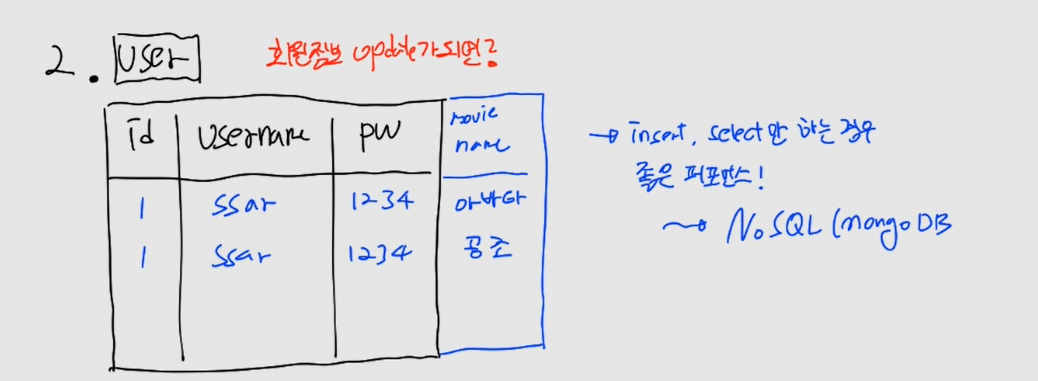 2. User 회원정보 update가 되면?
id username pw movie name
1 ssar 1234 아바타
1 ssar 1234 공조
→ insert, select만 하는 경우
좋은 퍼포먼스!
→ NoSQL (mongoDB